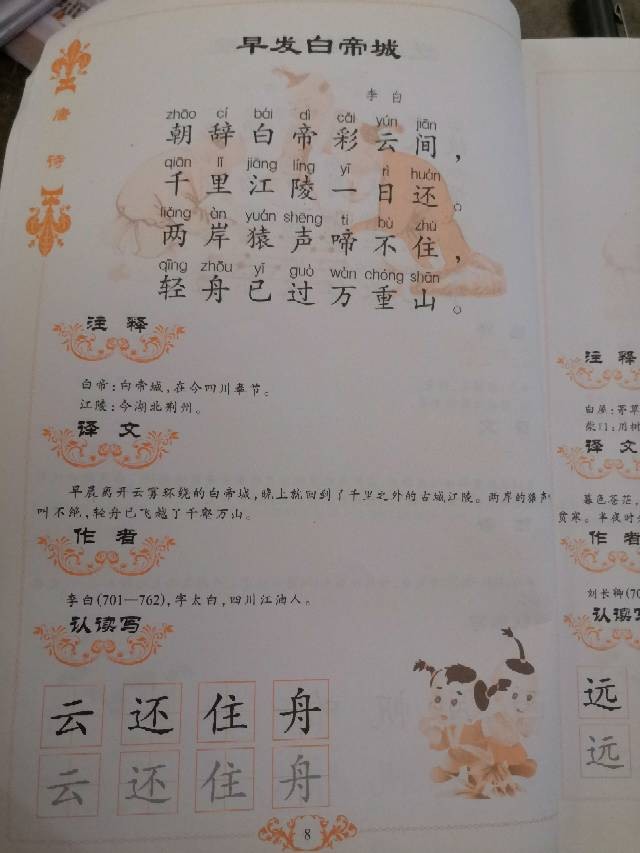 唐诗
早发白帝城
李白
zhāo cí bái dì cǎi yún jiān
朝辞白帝彩云间，
qiān lǐ jiāng líng yī rì huán
千里江陵一日还。
liǎng àn yuán shēng tí bù zhù
两岸猿声啼不住，
qīng zhōu yǐ guò wàn chóng shān
轻舟已过万重山。
注释
白帝：白帝城，在今四川奉节。
江陵：今湖北荆州。
译文
早晨离开云雾环绕的白帝城，晚上就回到了千里之外的古城江陵。两岸的猿声
叫不绝，轻舟已飞越了千壑万山。
作者
李白(701—762)，字太白，四川江油人。
认读写
云 还 住 舟
云 还 住 舟
8
注释
白屋：茅草
柴门：用树
译文
暮色苍茫，
贫寒。半夜时
作者
刘长卿(70
认读写
远
远